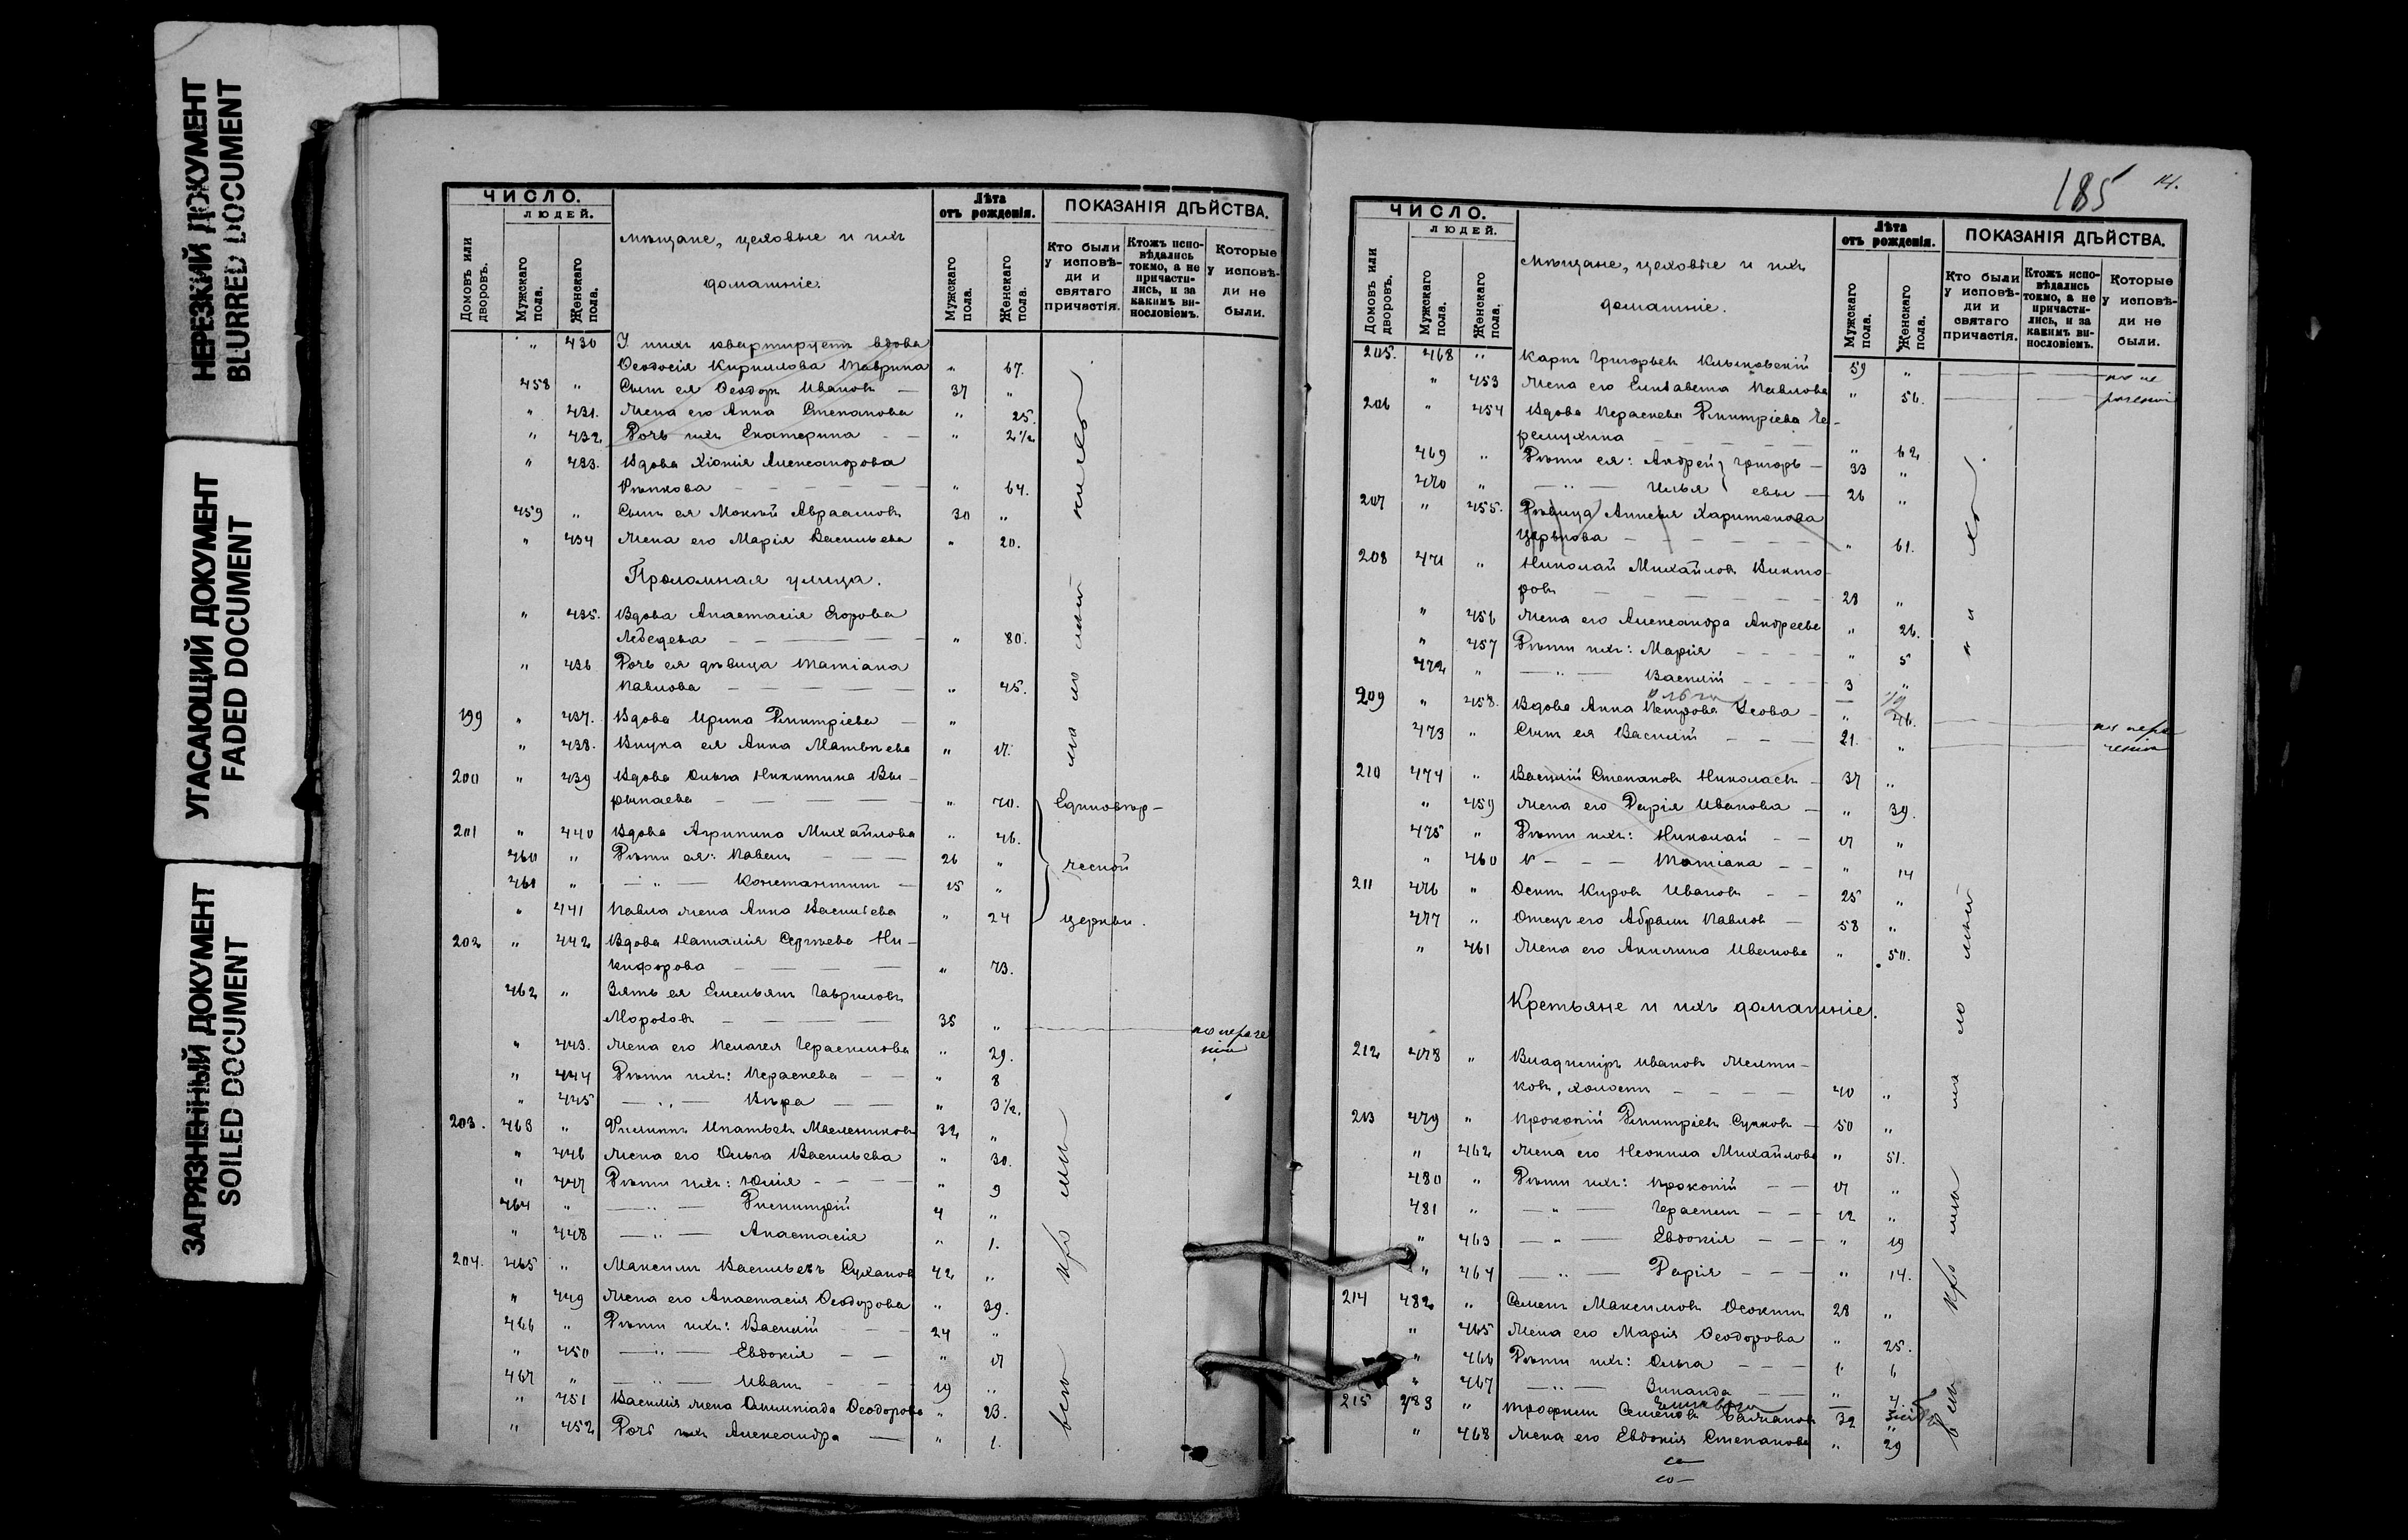 НЕРЕЗКИЙ ДОКУМЕНТ
BLURRED DOCUMENT
УГАСАЮЩИЙ ДОКУМЕНТ
FADED DOCUMENT
ЗАГРЯЗНЕННЫЙ ДОКУМЕНТ
SOILED DOCUMENT
ЧИСЛО.
ЛЮДЕЙ.
Домовъ или дворовъ.
Мужскаго пола.
Женскаго пола.
Мѣщане, цеховые и ихъ
домашніе.
Лѣта
отъ рожденія.
Мужскаго пола.
Женскаго пола.
ПОКАЗАНІЯ ДѢЙСТВА.
Кто были у исповѣ-ди и святаго причастія.
Ктожъ испо-вѣдались токмо, а не причасти-лись, и за какимъ ви-нословіемъ.
Которые у исповѣ-ди не были.
" 430 У нихъ квартируетъ вдова
Ѳеодосія Кириллова Таврина " 67.
458 " Сынъ ея Ѳеодоръ Ивановъ — 37 "
" 431. Жена его Анна Степанова " 25.
" 432 Дочь ихъ Екатерина — " 2½
" 433. Вдова Хіонія Александрова
Рѣпкова — " 64.
459 " Сынъ ея Мокій Авраамовъ 30 "
" 434 Жена его Марія Васильева " 20.
Проломная улица.
" 435. Вдова Анастасія Егорова
Лебедева — " 80.
" 436 Дочь ея дѣвица Татіана
Павлова — " 45.
199 " 437. Вдова Ирина Димитріева — "
" 438. Внука ея Анна Матвѣева " 17.
200 " 439 Вдова Ольга Никитина Вы-
рыпаева — " 70. Единовѣр-
201 " 440 Вдова Агрипина Михайлова " 46.
460 " Дѣти ея: Павелъ — 26 " ческой
461 " — " — Константинъ — 15 "
" 441 Павла жена Анна Васильева " 24 церкви.
202 " 442 Вдова Наталія Сергѣева Ни-
кифорова — " 73.
462 " Зять ея Емельянъ Гавриловъ
Морозовъ — 35 " по нераче
" 443. Жена его Пелагея Герасимова " 29. нію
" 444 Дѣти ихъ: Параскева — " 8
" 445 — " — Вѣра — " 3½.
203. 463 " Филиппъ Ипатьевъ Масленниковъ 32 "
" 446 Жена его Ольга Васильева " 30.
" 447 Дѣти ихъ: Юлія — " 9
464 " — " — Димитрій 4 "
" 448 — " — Анастасія " 1.
204. 465 " Максимъ Васильевъ Сухановъ 42 "
" 449 Жена его Анастасія Ѳеодорова " 39.
466 " Дѣти ихъ: Василій — 24 "
" 450 — " — Евдокія — " 17
467 " — " — Иванъ — 19 "
" 451 Василія жена Олимпіада Ѳеодорова " 23.
" 452 Дочь ихъ Александра — " 1.
185 14.
ЧИСЛО.
ЛЮДЕЙ.
Домовъ или дворовъ.
Мужскаго пола.
Женскаго пола.
Мѣщане, цеховые и ихъ
домашніе.
Лѣта
отъ рожденія.
Мужскаго пола.
Женскаго пола.
ПОКАЗАНІЯ ДѢЙСТВА.
Кто были у исповѣ-ди и святаго причастія.
Ктожъ испо-вѣдались токмо, а не причасти-лись, и за какимъ ви-нословіемъ.
Которые у исповѣ-ди не были.
205. 468 " Карпъ Григорьевъ 59 " по не
" 453 Жена его Елисавета Павлова " 56. раченію
206 " 454 Вдова Параскева Димитріева Че-
ремухина — " 62
469 " Дѣти ея: Андрей } Григорь- 33 "
470 " — " — Илья } евы — 26 "
207 " 455. Дѣвица Анисья Харитонова
— " 61.
208 471 " Николай Михайловъ Викто-
ровъ — 28 "
" 456 Жена его Александра Андреева " 26.
" 457 Дѣти ихъ: Марія — " 5
472 " — " — Василій — 3 "
Ольга
209 " 458. Вдова Анна Петрова Усова — " 46. по нера
473 " Сынъ ея Василій — 21. " ченію
210 474 " Василій Степановъ Николаевъ — 37 "
" 459 Жена его Дарія Иванова — " 39.
475 " Дѣти ихъ: Николай — 17 "
" 460 Татіана — " 14
211 476 " Осипъ Кировъ Ивановъ — 25 "
477 " Отецъ его Абрамъ Павлов — 58 "
" 461 Жена его Акилина Иванова " 50.
Крестьяне и ихъ домашніе.
212 478 " Владимиръ Ивановъ Желти-
ковъ, холостъ — 40 "
213 479 " Прокопій Димитріевъ Сучковъ — 50 "
" 462 Жена его Неонила Михайлова " 51.
480 " Дѣти ихъ: Прокопій — 17 "
481 " — " — Герасимъ — 12 "
" 463 — " — Евдокія — " 19
" 464 — " — Дарія — " 14.
214 482 " Семенъ Максимовъ Осокинъ 28 "
" 465 Жена его Марія Ѳеодорова " 25.
" 466 Дѣти ихъ: Ольга — " 6
" 467 — " — Зинаида — " 4.
215 483 " Трофимъ Семеновъ 32 "
" 468 Жена его Евдокія Степанова " 29